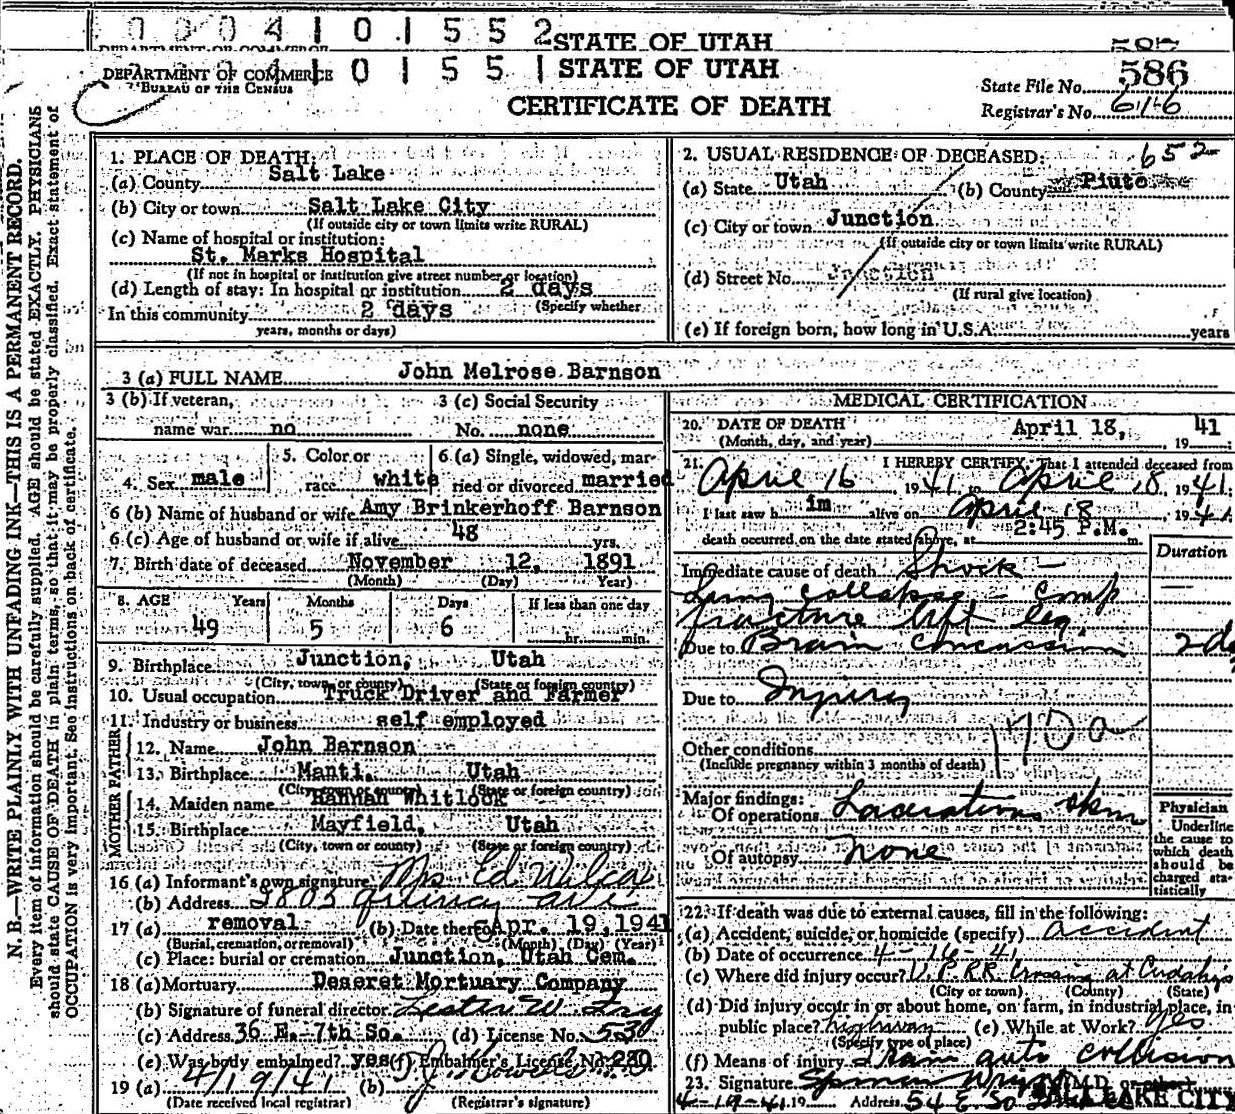 0 0 0 4 1 0 1 5 5 2 STATE OF UTAH 587
DEPARTMENT OF COMMERCE
DEPARTMENT OF COMMERCE 4 1 0 1 5 5 1 STATE OF UTAH
BUREAU OF THE CENSUS
CERTIFICATE OF DEATH
State File No. 586
Registrar's No. 616
N. B.—WRITE PLAINLY WITH UNFADING INK—THIS IS A PERMANENT RECORD.
Every item of information should be carefully supplied. AGE should be stated EXACTLY. PHYSICIANS
should state CAUSE OF DEATH in plain terms, so that it may be properly classified. Exact statement of
OCCUPATION is very important. See instructions on back of certificate.
1. PLACE OF DEATH:
(a) County Salt Lake
(b) City or town Salt Lake City
(If outside city or town limits write RURAL)
(c) Name of hospital or institution:
St. Marks Hospital
(If not in hospital or institution give street number or location)
(d) Length of stay: In hospital or institution 2 days
(Specify whether
In this community 2 days
years, months or days)
2. USUAL RESIDENCE OF DECEASED: 652
(a) State Utah (b) County Piute
(c) City or town Junction
(If outside city or town limits write RURAL)
(d) Street No. Junction
(If rural give location)
(e) If foreign born, how long in U.S.A. years
3 (a) FULL NAME John Melrose Barnson
3 (b) If veteran, 3 (c) Social Security
name war no No. none
4. Sex male 5. Color or race white 6 (a) Single, widowed, married or divorced married
6 (b) Name of husband or wife Amy Brinkerhoff Barnson
6 (c) Age of husband or wife if alive 48 yrs.
7. Birth date of deceased November 12, 1891
(Month) (Day) Year)
8. AGE Years Months Days If less than one day
49 5 6 hr. min.
9. Birthplace Junction, Utah
(City, town, or county) (State or foreign country)
10. Usual occupation Truck Driver and Farmer
11. Industry or business self employed
FATHER
12. Name John Barnson
13. Birthplace Manti, Utah
(City, town or county) (State or foreign country)
MOTHER
14. Maiden name Hannah Whitlock
15. Birthplace Mayfield, Utah
(City, town or county) (State or foreign country)
16 (a) Informant's own signature Mrs Ed Wilcox
(b) Address 3805 Quincy ave
17 (a) removal (b) Date thereof Apr. 19, 1941
(Burial, cremation, or removal) (Month) (Day) (Year)
(c) Place: burial or cremation Junction, Utah Cem.
18 (a) Mortuary Deseret Mortuary Company
(b) Signature of funeral director Lester W. Fry
(c) Address 36 E. 7th So. (d) License No. 530
(e) Was body embalmed? yes (f) Embalmer's License No. 280
19 (a) 4/19/41 (b)
(Date received local registrar) (Registrar's signature)
MEDICAL CERTIFICATION
20. DATE OF DEATH April 18, 1941
(Month, day, and year)
21. I HEREBY CERTIFY, That I attended deceased from
April 16 1941 to April 18, 1941.
I last saw him alive on April 18, 1941
death occurred on the date stated above, at 2:45 P.M. m.
Duration
Immediate cause of death Shock —
Lung collapse — Comp
fracture left leg.
Due to Brain Concussion 2 da
Due to Injury
170a
Other conditions
(Include pregnancy within 3 months of death)
Major findings:
Of operations Lacerations skin
Of autopsy none
Physician
Underline the cause to which death should be charged statistically
22. If death was due to external causes, fill in the following:
(a) Accident, suicide, or homicide (specify) accident
(b) Date of occurrence 4-16-41
(c) Where did injury occur? U.P.RR Crossing at Cudahys
(City or town) (County) (State)
(d) Did injury occur in or about home, on farm, in industrial place, in
public place? highway (e) While at Work? yes
(Specify type of place)
(f) Means of injury Train auto collision
23. Signature M.D.
4-19-41 19 Address 54 E So SALT LAKE CITY